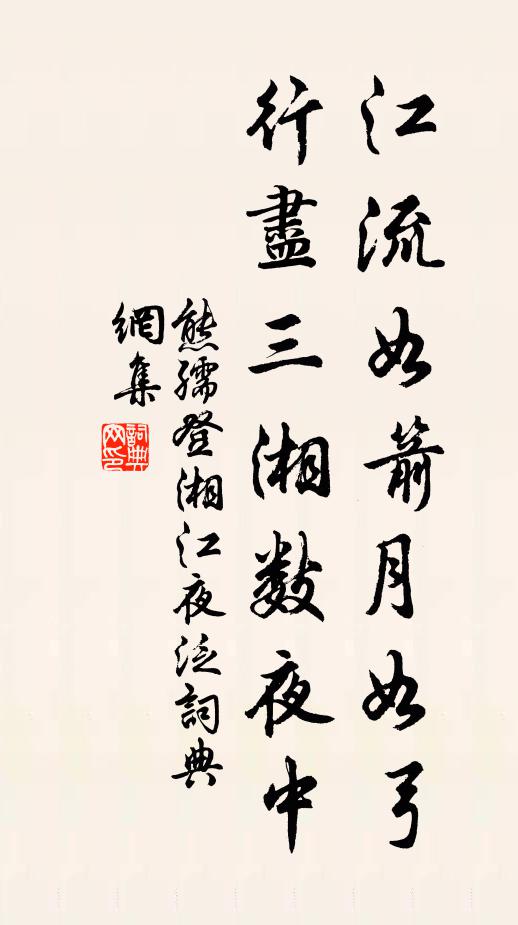 江流如箭月如弓
行盡三湘數夜中
熊孺登湘江夜泛詞典
網集
詞典
网印